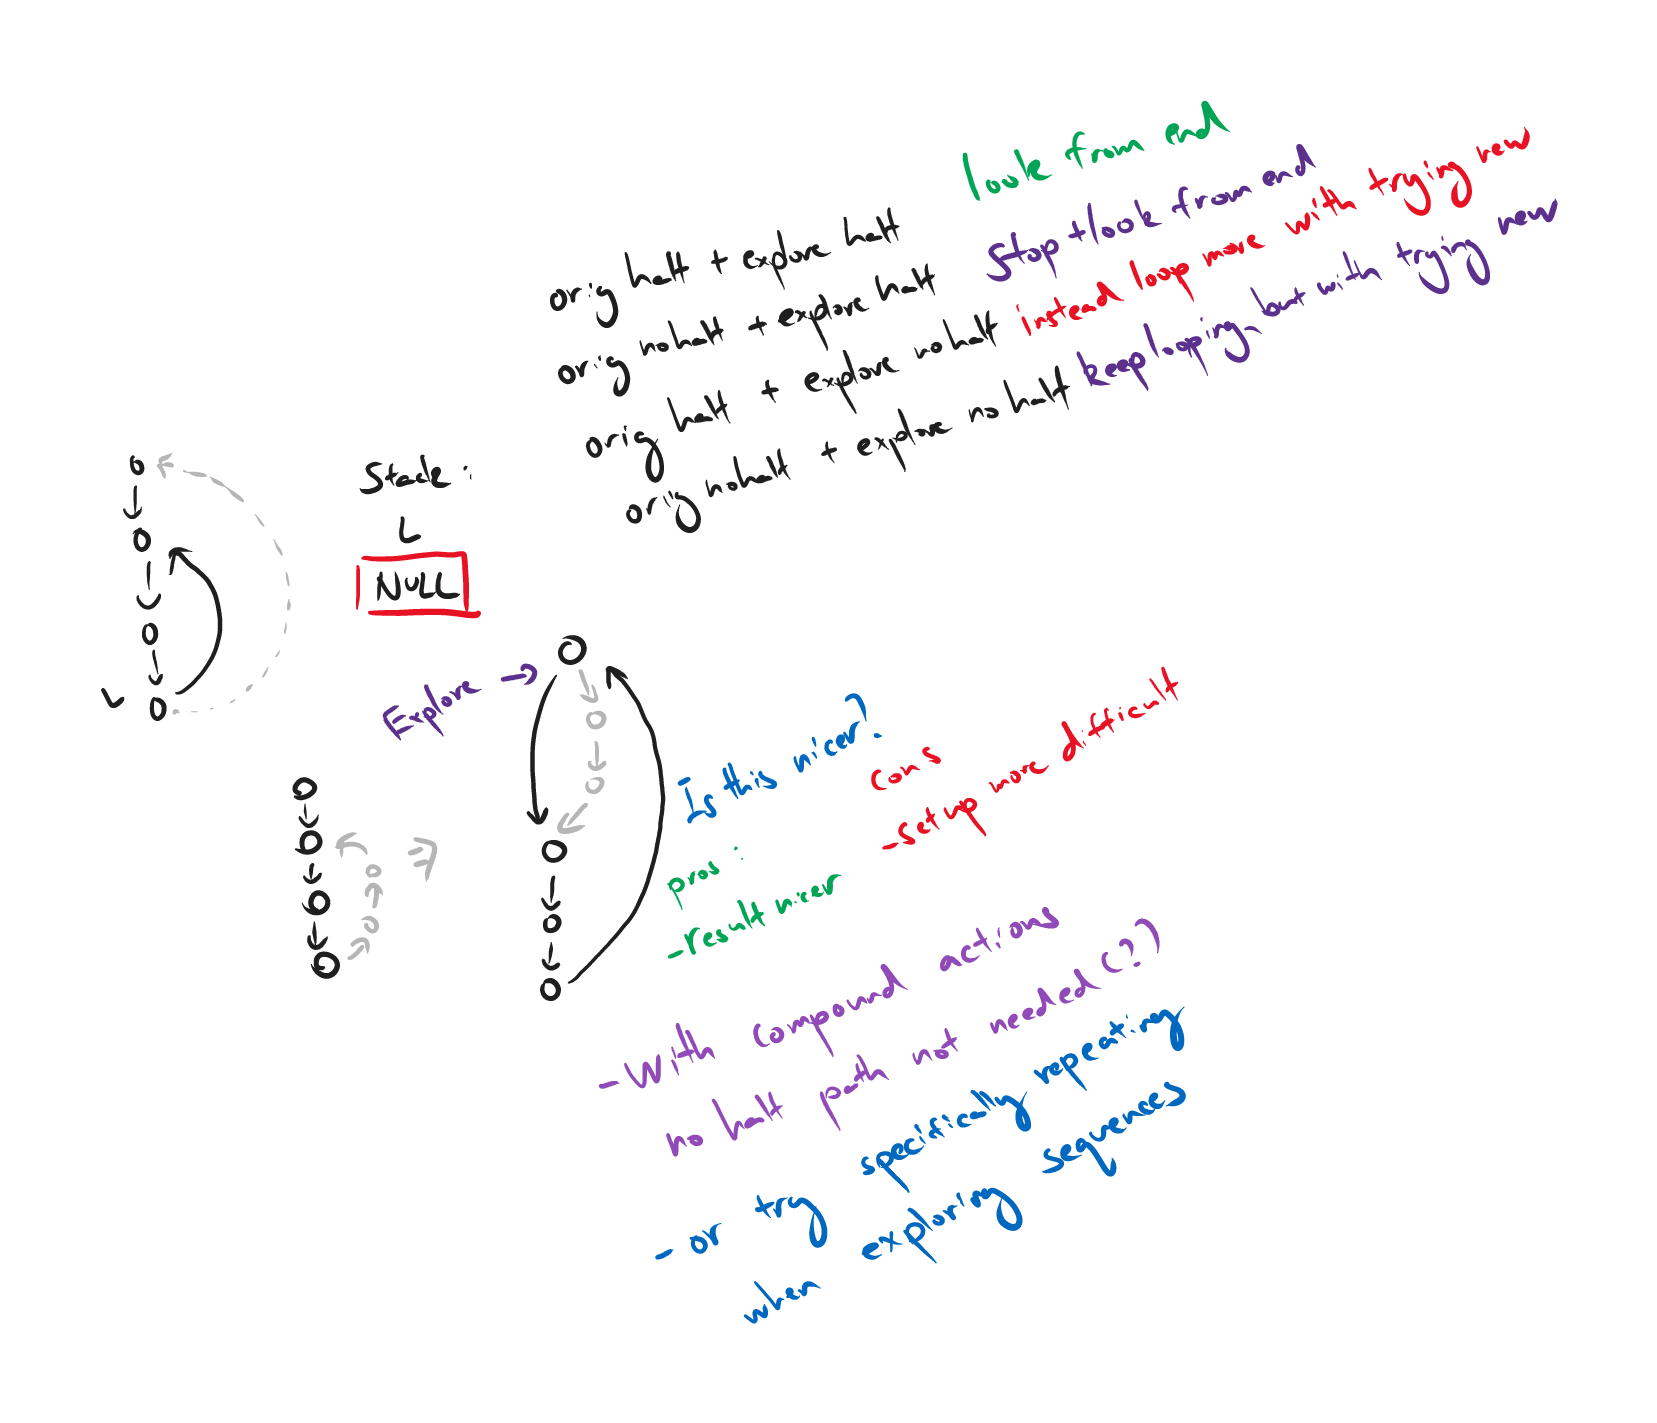 orig halt + explore halt look from end
orig no halt + explore halt Stop + look from end
orig halt + explore no halt instead loop more with trying new
orig no halt + explore no halt keep looping but with trying new
Stack :
L
NULL
L
Explore →
Is this nicer?
cons
- set up more difficult
pros :
- result nicer
- With compound actions
no halt path not needed (?)
- or try specifically repeating
when exploring sequences